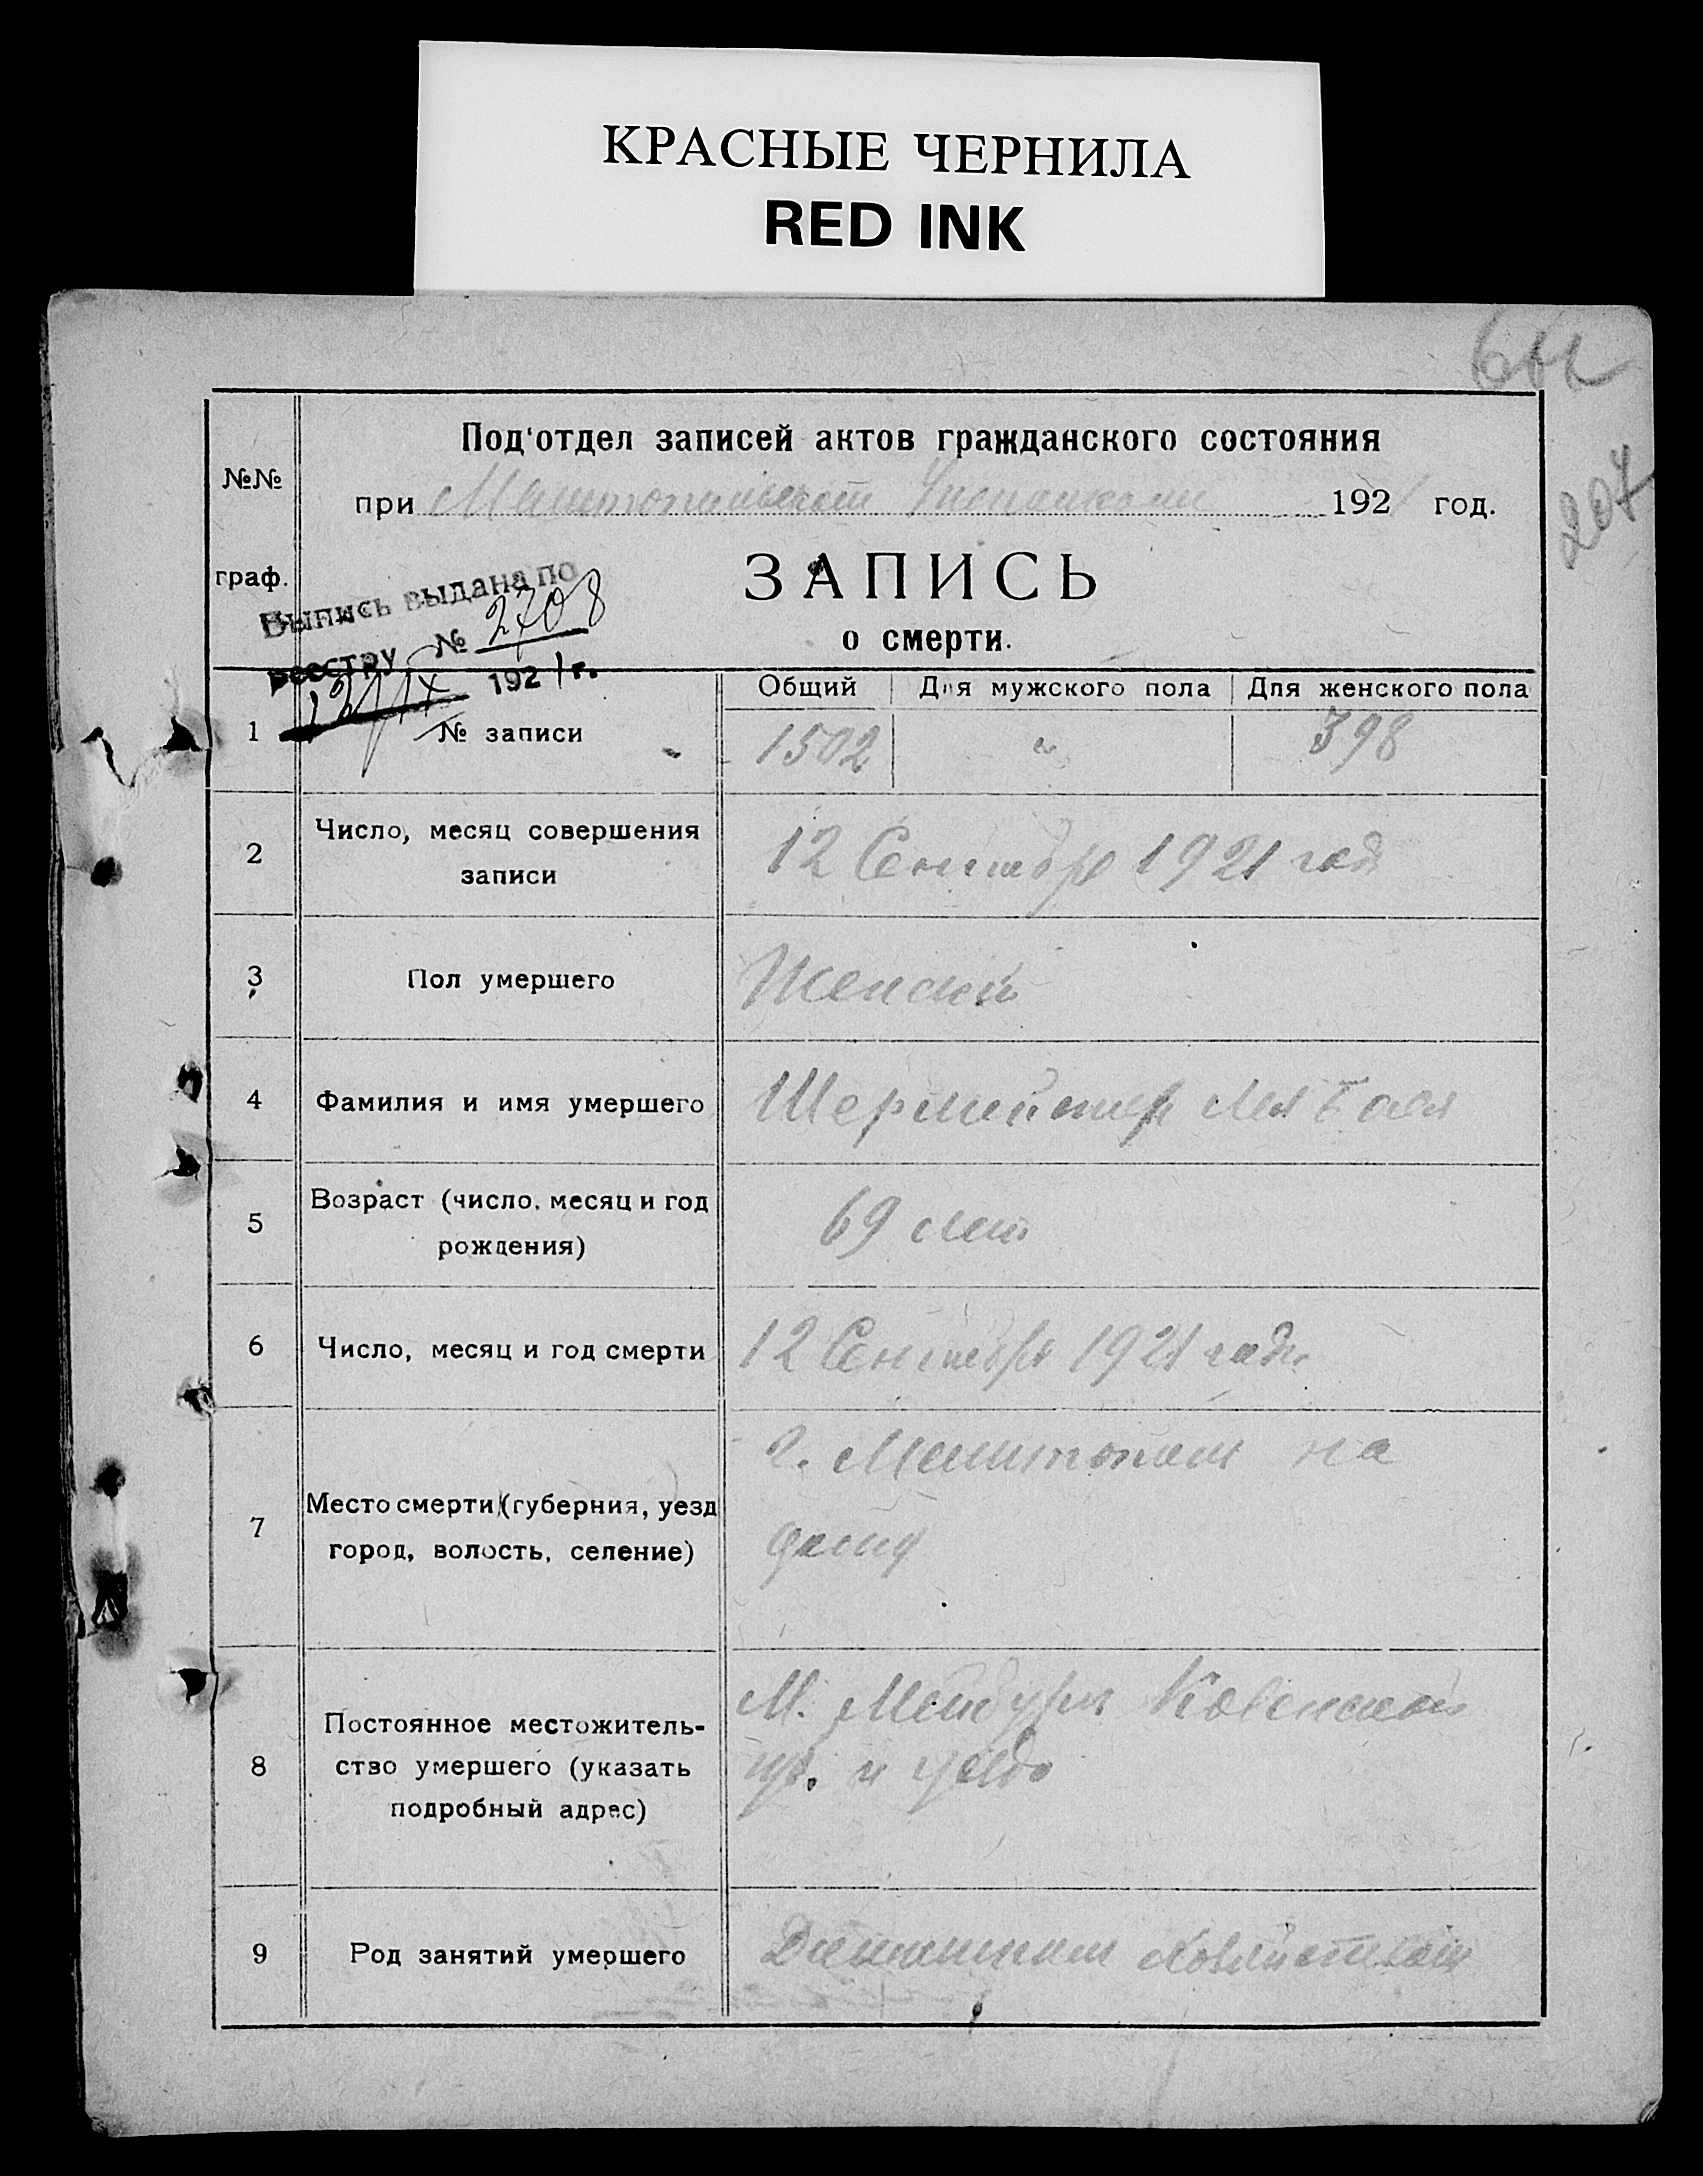 КРАСНЫЕ ЧЕРНИЛА
RED INK
207
Под'отдел записей актов гражданского состояния
№№
при Мелитопольском 1921 год.
граф.
ЗАПИСЬ
о смерти.
Выпись выдана по
реестру № 2708
12/IX 1921 г.
Общий Для мужского пола Для женского пола
1 № записи 1502 " 398
2 Число, месяц совершения
записи
12 Сентябр 1921 год
3 Пол умершего Женский
4 Фамилия и имя умершего Шермейстер
5 Возраст (число, месяц и год
рождения)
69 лет
6 Число, месяц и год смерти 12 Сентябр 1921 года
7 Место смерти (губерния, уезд
город, волость, селение)
г. Мелитополь на
дому
8 Постоянное местожитель-
ство умершего (указать
подробный адрес)
М. Ковенской
губ. и уезда
9 Род занятий умершего Домашнем хозяйством